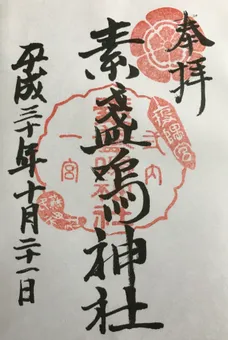 奉拝
素盞嗚神社
平成三十年十月二十一日
一宮